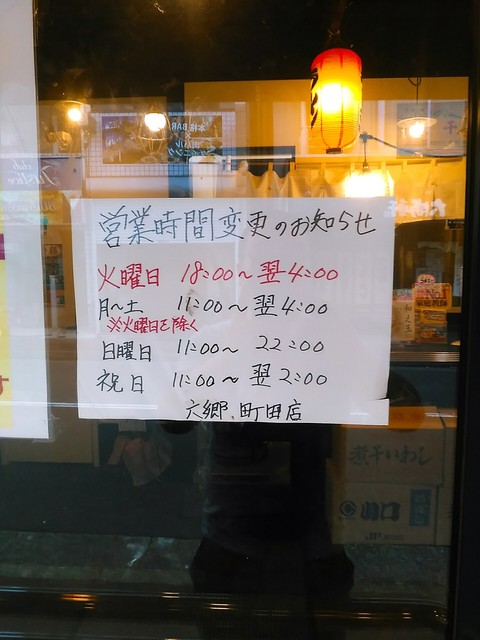 営業時間変更のお知らせ
火曜日 18:00〜翌4:00
月〜土 11:00〜翌4:00
※火曜日を除く
日曜日 11:00〜 22:00
祝日 11:00〜翌2:00
六郷.町田店
本格BAR
No.1
煮干いわし
川口